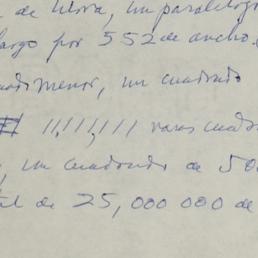 de tierra, un paralelogr
largo por 552 de ancho.
menor, un cuadrado
11,111,111 varas cuad
, un cuadrado de 500
de 25,000 000 de